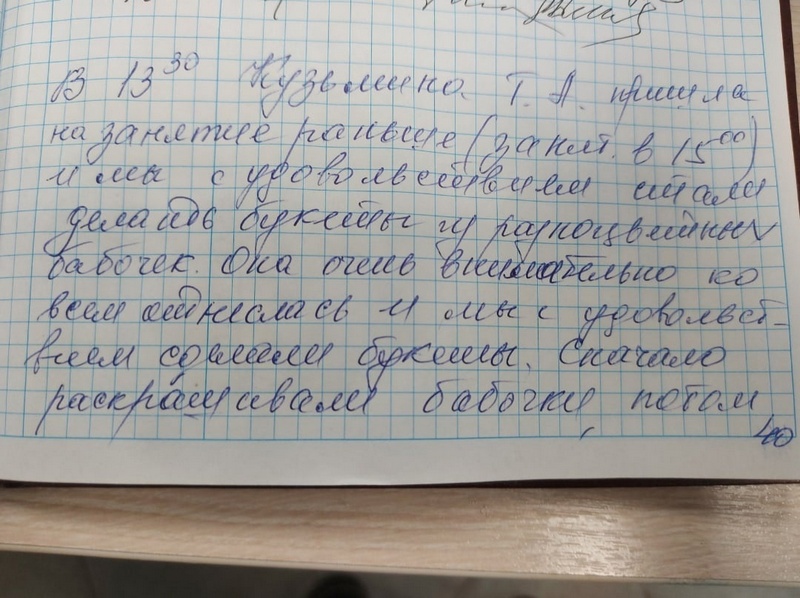 В 13 30 Кузьмина Т. А. пришла
на занятие раньше (занят. в 15 00)
и мы с удовольствием стали
делать букеты из разноцветных
бабочек. Она очень внимательно ко
всем отнеслась и мы с удовольст-
вием сделали букеты. Сначало
раскрашивали бабочки, потом
40